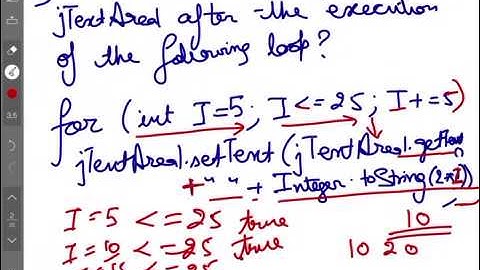 jTextArea1 after the execution
of the following loop?
for (int I=5; I<=25; I+=5)
jTextArea1.setText (jTextArea1.getText()
+" " + Integer.toString(2*I))
I=5 <=25 true
10
I=10 <=25 true
10 20
<=25
3.5
2